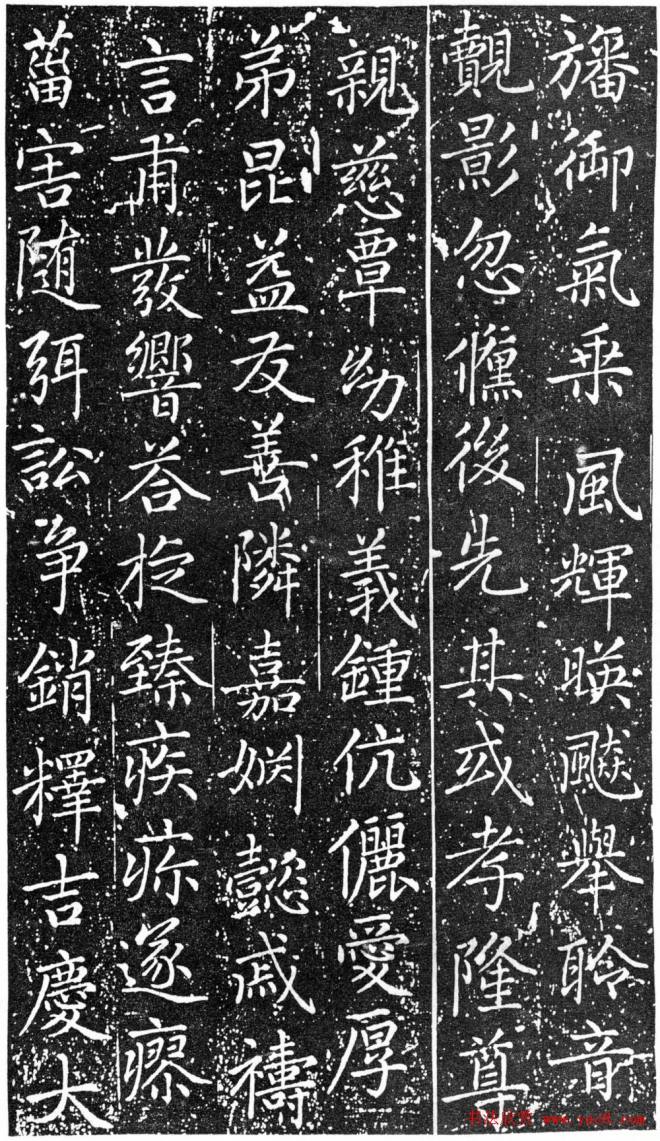 旛御氣乗風輝暎飈舉聆音
覿影忽儵後先其或孝隆尊
親慈覃幼稚義鍾伉儷愛厚
弟昆益友善隣嘉姻懿戚禱
言甫發響荅旋臻疾疢遂瘳
菑害随弭訟争銷釋吉慶大
书法欣赏 www.yac8.com